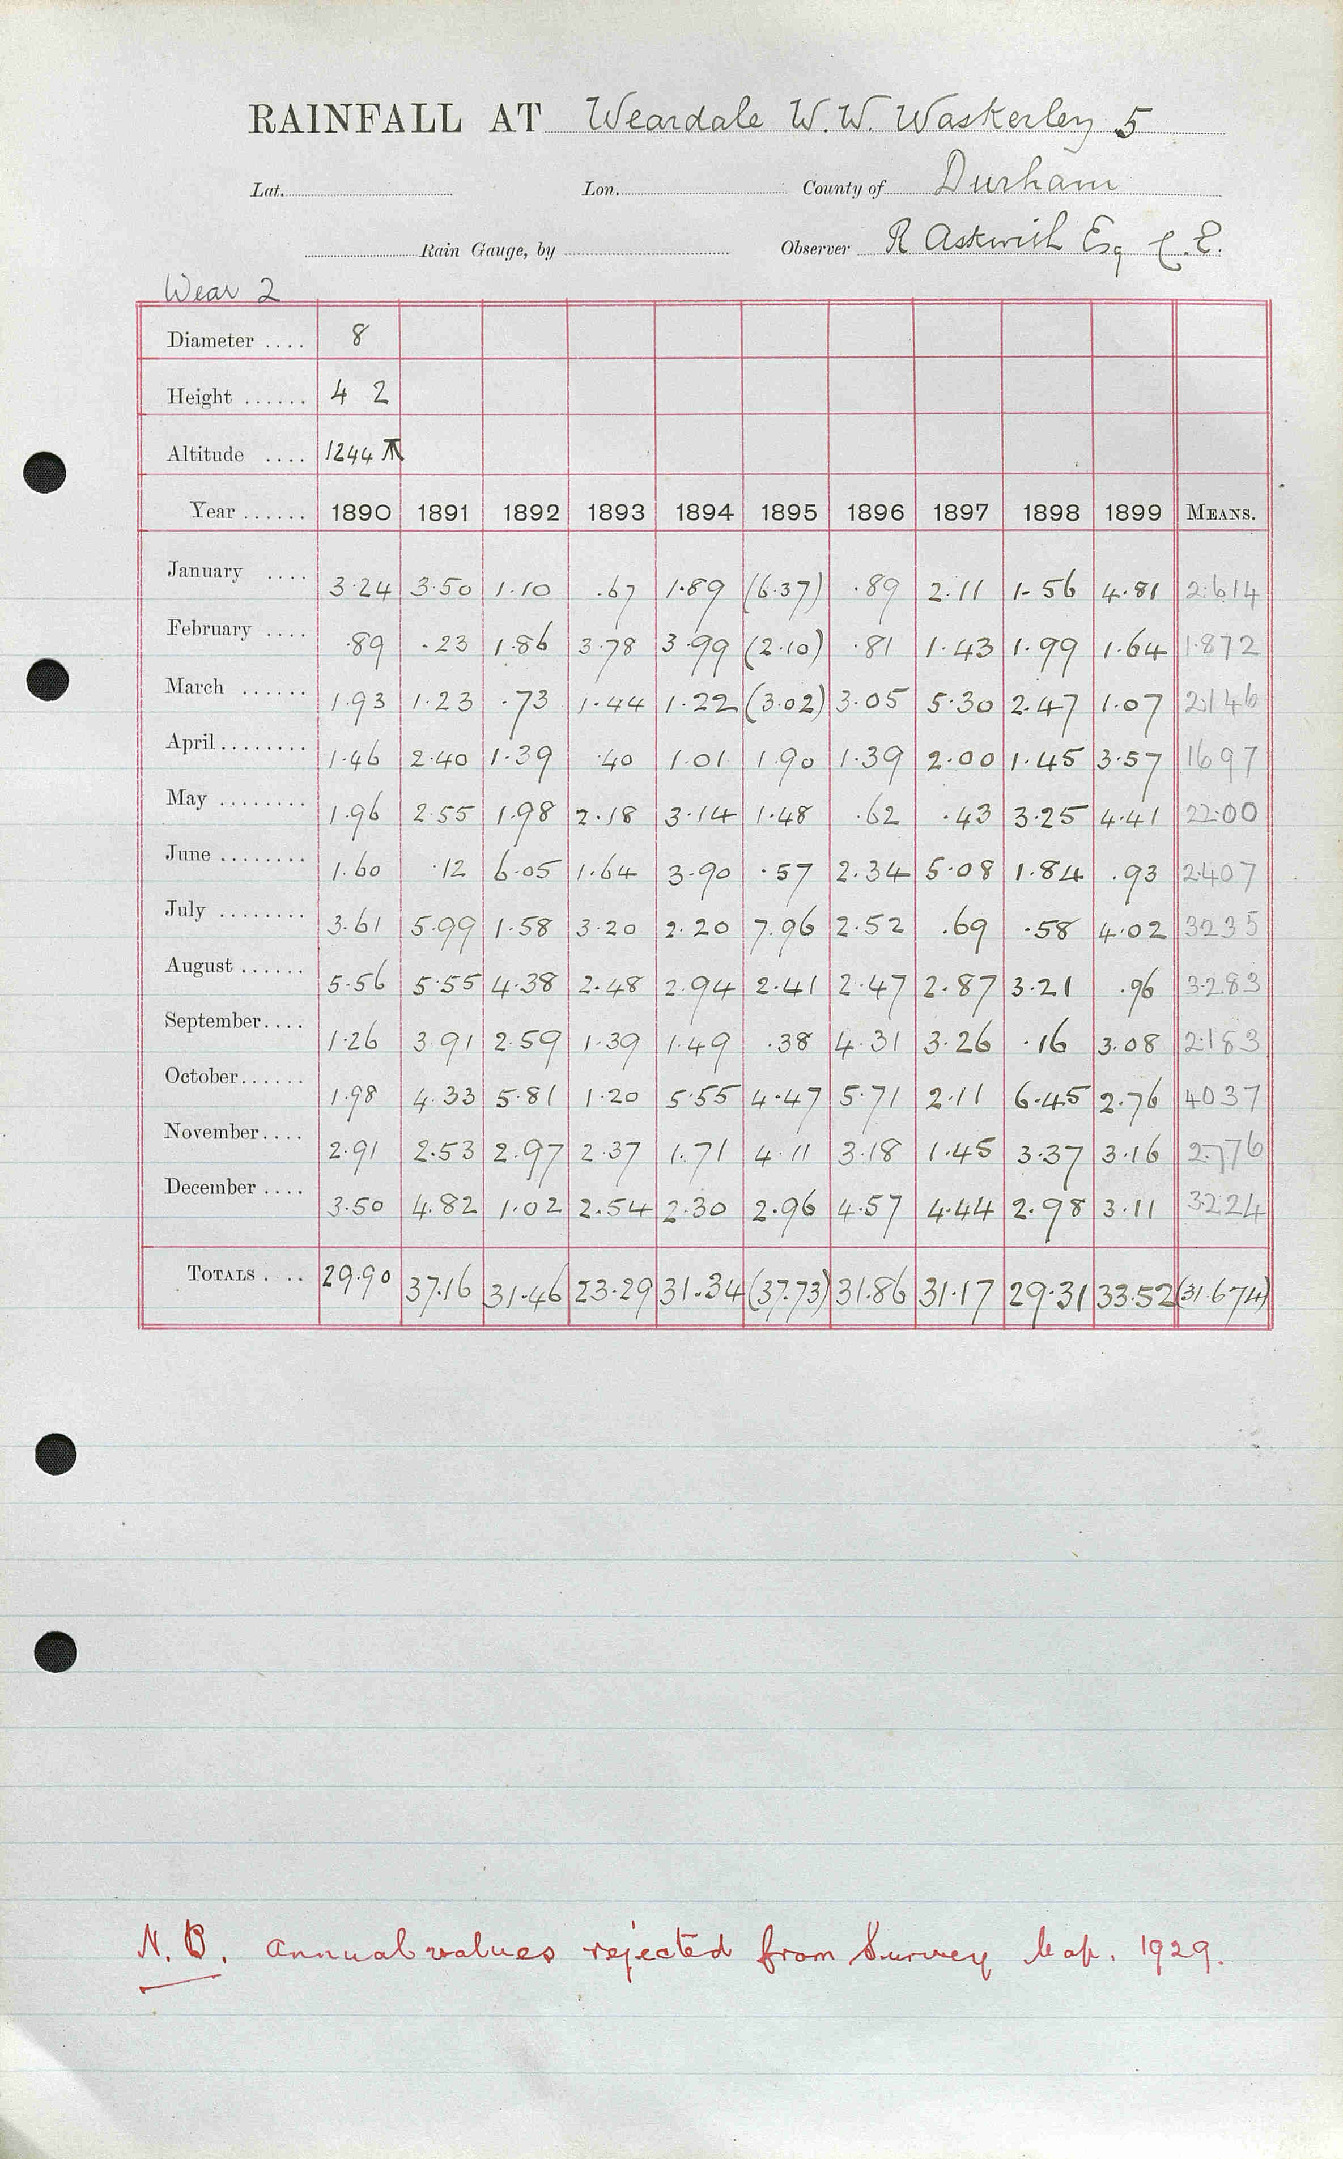 RAINFALL AT Weardale W.W. Waskerley 5
Lat. Lon. County of Durham
Rain Gauge, by Observer R Askwith Esq C.E.
Wear 2
Diameter .... 8
Height ...... 4 2
Altitude .... 1244
Year ...... 1890 1891 1892 1893 1894 1895 1896 1897 1898 1899 MEANS.
January .... 3.24 3.50 1.10 .67 1.89 (6.37) .89 2.11 1.56 4.81 2.614
February .... .89 .23 1.86 3.78 3.99 (2.10) .81 1.43 1.99 1.64 1.872
March ...... 1.93 1.23 .73 1.44 1.22 (3.02) 3.05 5.30 2.47 1.07 2.146
April ........ 1.46 2.40 1.39 .40 1.01 1.90 1.39 2.00 1.45 3.57 1697
May ........ 1.96 2.55 1.98 2.18 3.14 1.48 .62 .43 3.25 4.41 22.00
June ........ 1.60 .12 6.05 1.64 3.90 .57 2.34 5.08 1.84 .93 2.407
July ........ 3.61 5.99 1.58 3.20 2.20 7.96 2.52 .69 .58 4.02 3235
August ...... 5.56 5.55 4.38 2.48 2.94 2.41 2.47 2.87 3.21 .96 3.283
September.... 1.26 3.91 2.59 1.39 1.49 .38 4.31 3.26 .16 3.08 2.183
October...... 1.98 4.33 5.81 1.20 5.55 4.47 5.71 2.11 6.45 2.76 4037
November.... 2.91 2.53 2.97 2.37 1.71 4.11 3.18 1.45 3.37 3.16 2.776
December .... 3.50 4.82 1.02 2.54 2.30 2.96 4.57 4.44 2.98 3.11 3224
TOTALS .... 29.90 37.16 31.46 23.29 31.34 (37.73) 31.86 31.17 29.31 33.52 (31.674)
N.B. Annual values rejected from Survey Map. 1929.